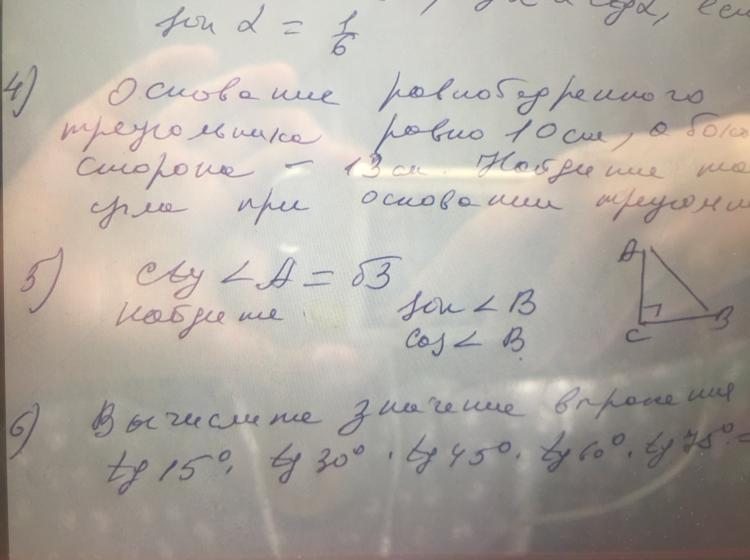 sin α = 1/6
4) Основание равнобедренного
треугольника равно 10 см, а
сторона – 13 см. Найдите
угла при основании
5) ctg ∠A = √3
Найдите sin ∠B
cos ∠B
A
C B
6) Вычислите значение
tg 15° · tg 30° · tg 45° · tg 60° · tg 75° =